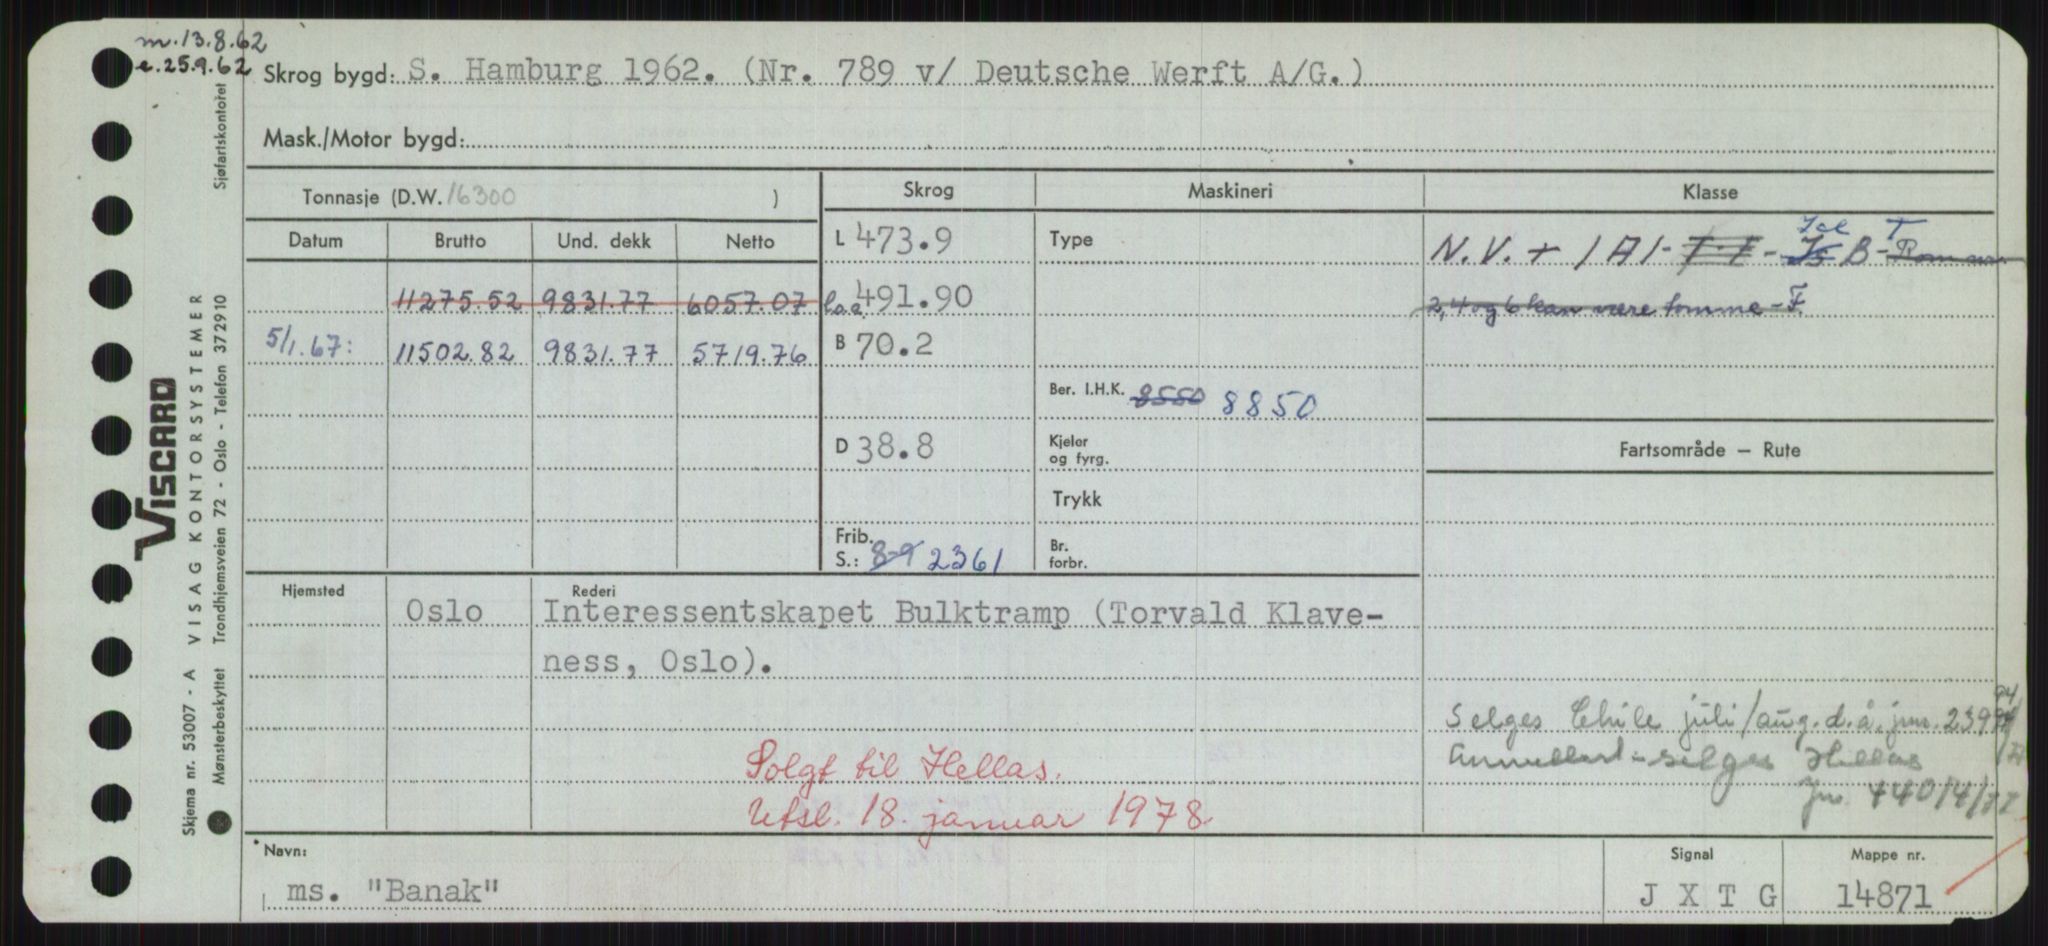 m. 13.8.62
e. 25.9.62
Skrog bygd: S. Hamburg 1962. (Nr. 789 v/ Deutsche Werft A/G.)
Mask./Motor bygd:
Tonnasje (D.W. 16300 )
Skrog
Maskineri
Klasse
Datum
Brutto
Und. dekk
Netto
11275.52 9831.77 6057.07
5/1.67: 11502.82 9831.77 5719.76
L 473.9
491.90
B 70.2
D 38.8
Frib.
S.: 8-9 2361
Type
Ber. I.H.K. 8550 8850
Kjeler
og fyrg.
Trykk
Br.
forbr.
Ice T
N.V. + 1A1- - Is B-Rom nr.
2,4 og 6 kan være tomme - F.
Fartsområde — Rute
Hjemsted
Oslo
Rederi
Interessentskapet Bulktramp (Torvald Klave-
ness, Oslo).
Solgt til Hellas.
Utsl. 18. januar 1978.
Selges Chile juli/aug. d.å. jnr.
Annullert - selges Hellas
Jnr. 44014/77
Navn:
ms. "Banak"
Signal
J X T G
Mappe nr.
14871
VISCARD
Skjema nr. 53007 - A VISAG KONTORSYSTEMER
Mønsterbeskyttet Trondhjemsveien 72 - Oslo - Telefon 372910 Sjøfartskontoret